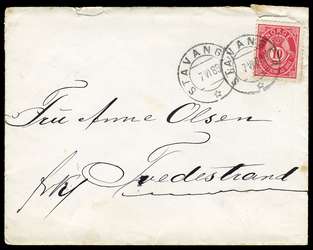 STAVANG
7 VI 89
STAVANG
7 VI
NORGE
10
Fru Anne Olsen
Tvedestrand